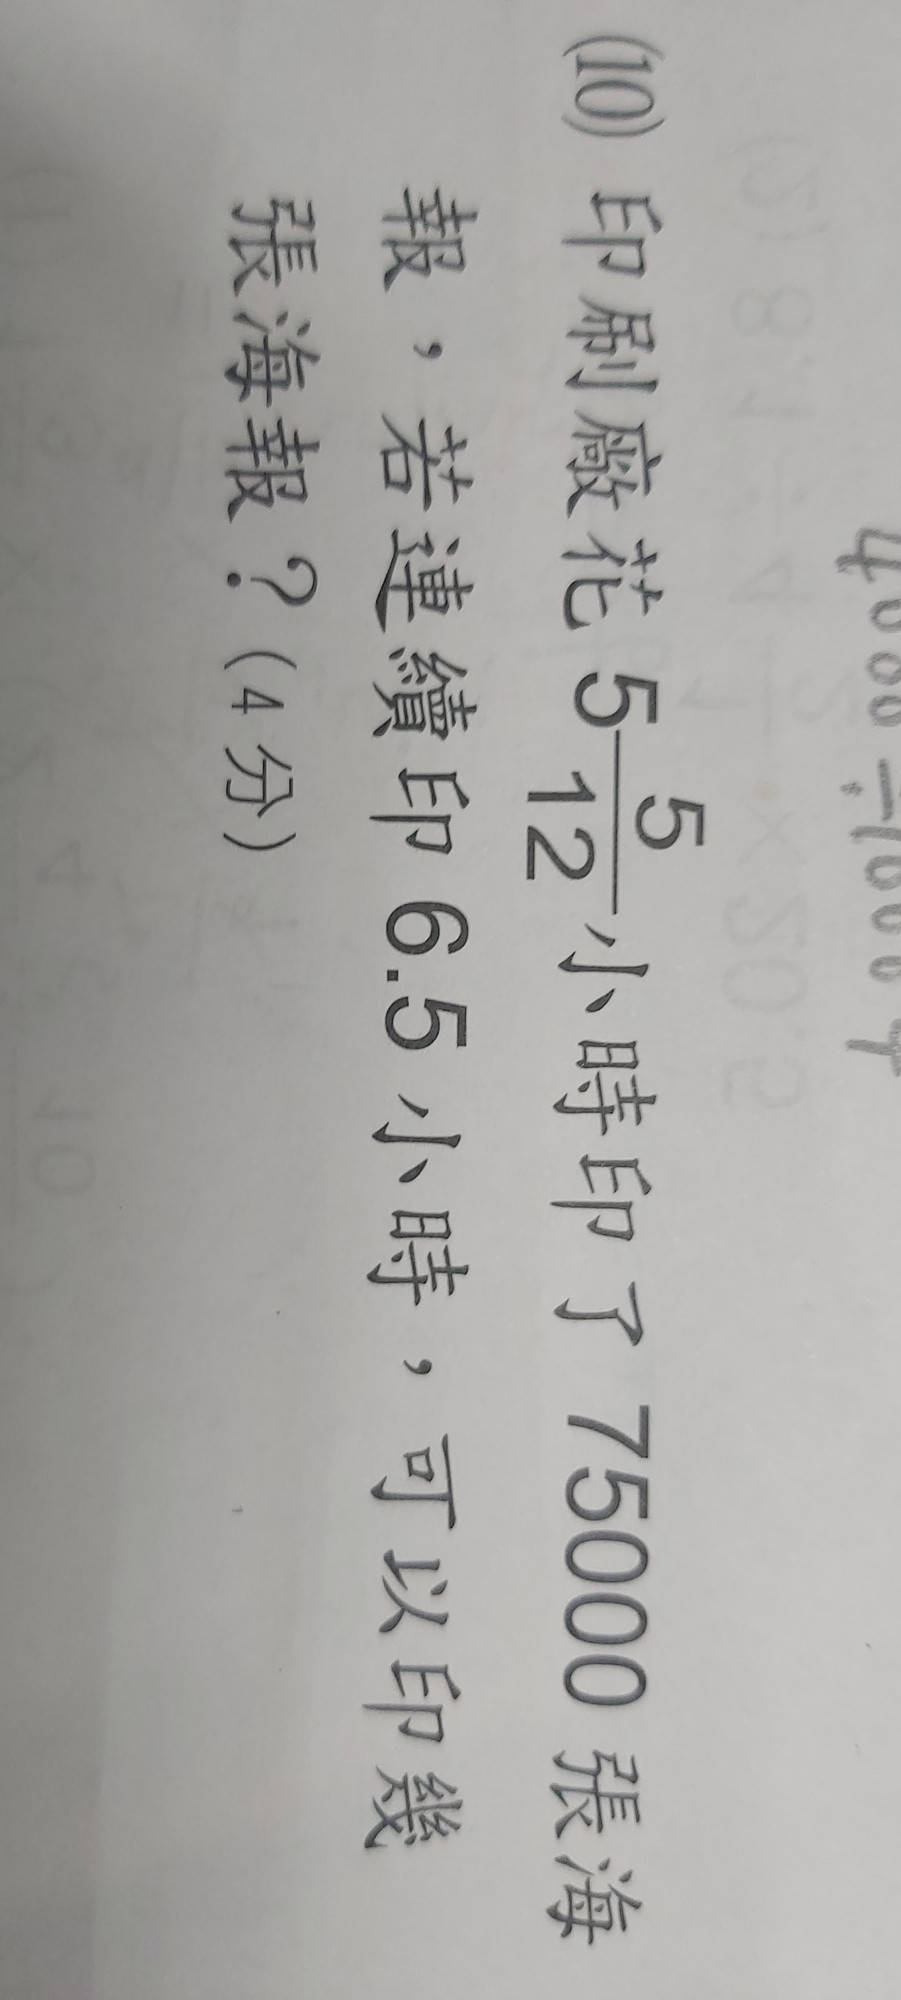 (10) 印刷廠花 5 5/12 小時印了 75000 張海
報，若連續印 6.5 小時，可以印幾
張海報？(4 分)